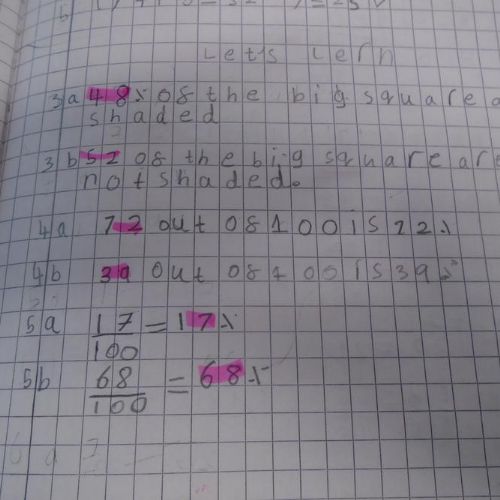 Let's Lern
3a 48% of the big square a
shaded
3b 52 of the big square are
not shaded.
4a 72 out of 100 is 72%
4b 39 out of 100 is 39%
5a 17/100 = 17%
5b 68/100 = 68%